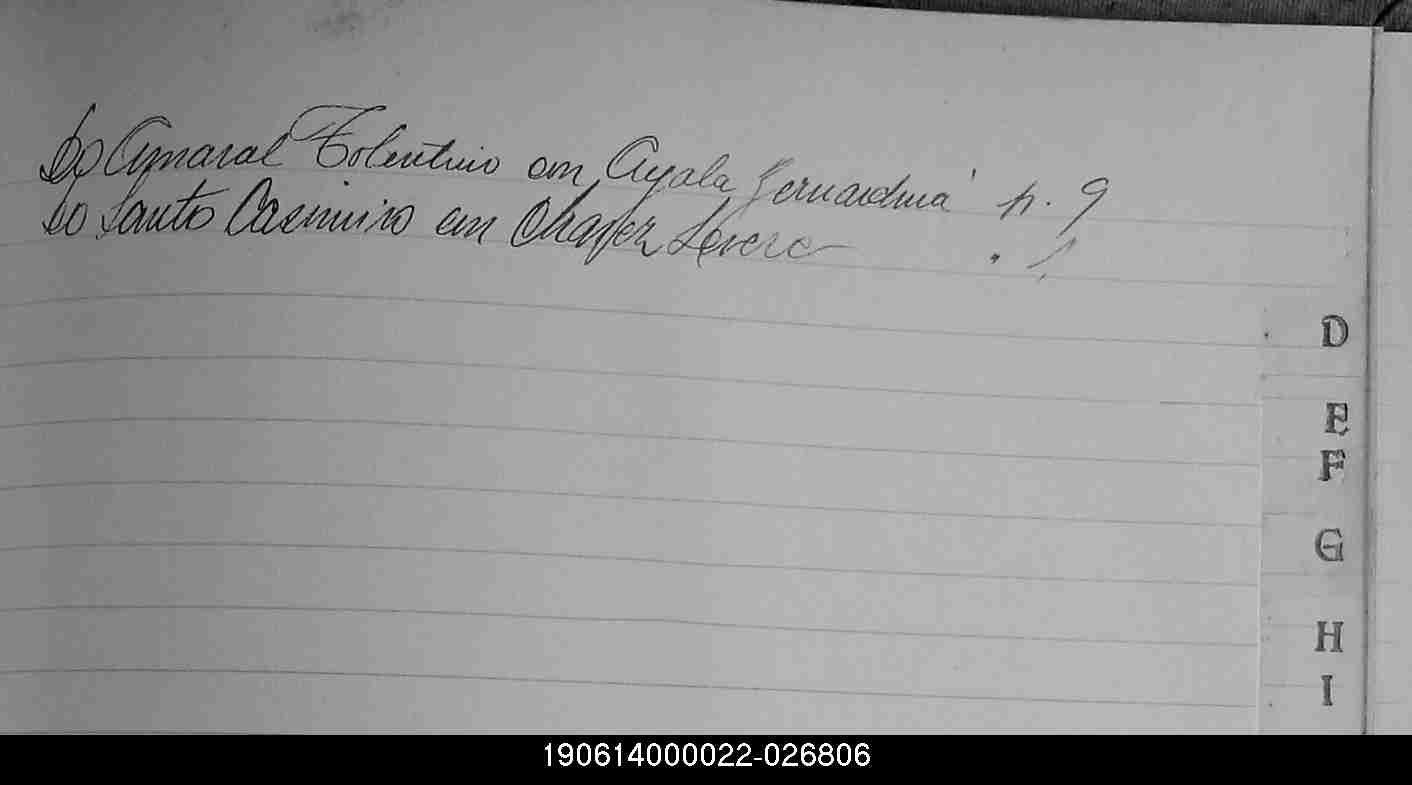 Do Amaral Tolentino con Ayala Bernardina p. 9
Do Santo Casimiro con Chavez Severo
D
E
F
G
H
I
190614000022-026806